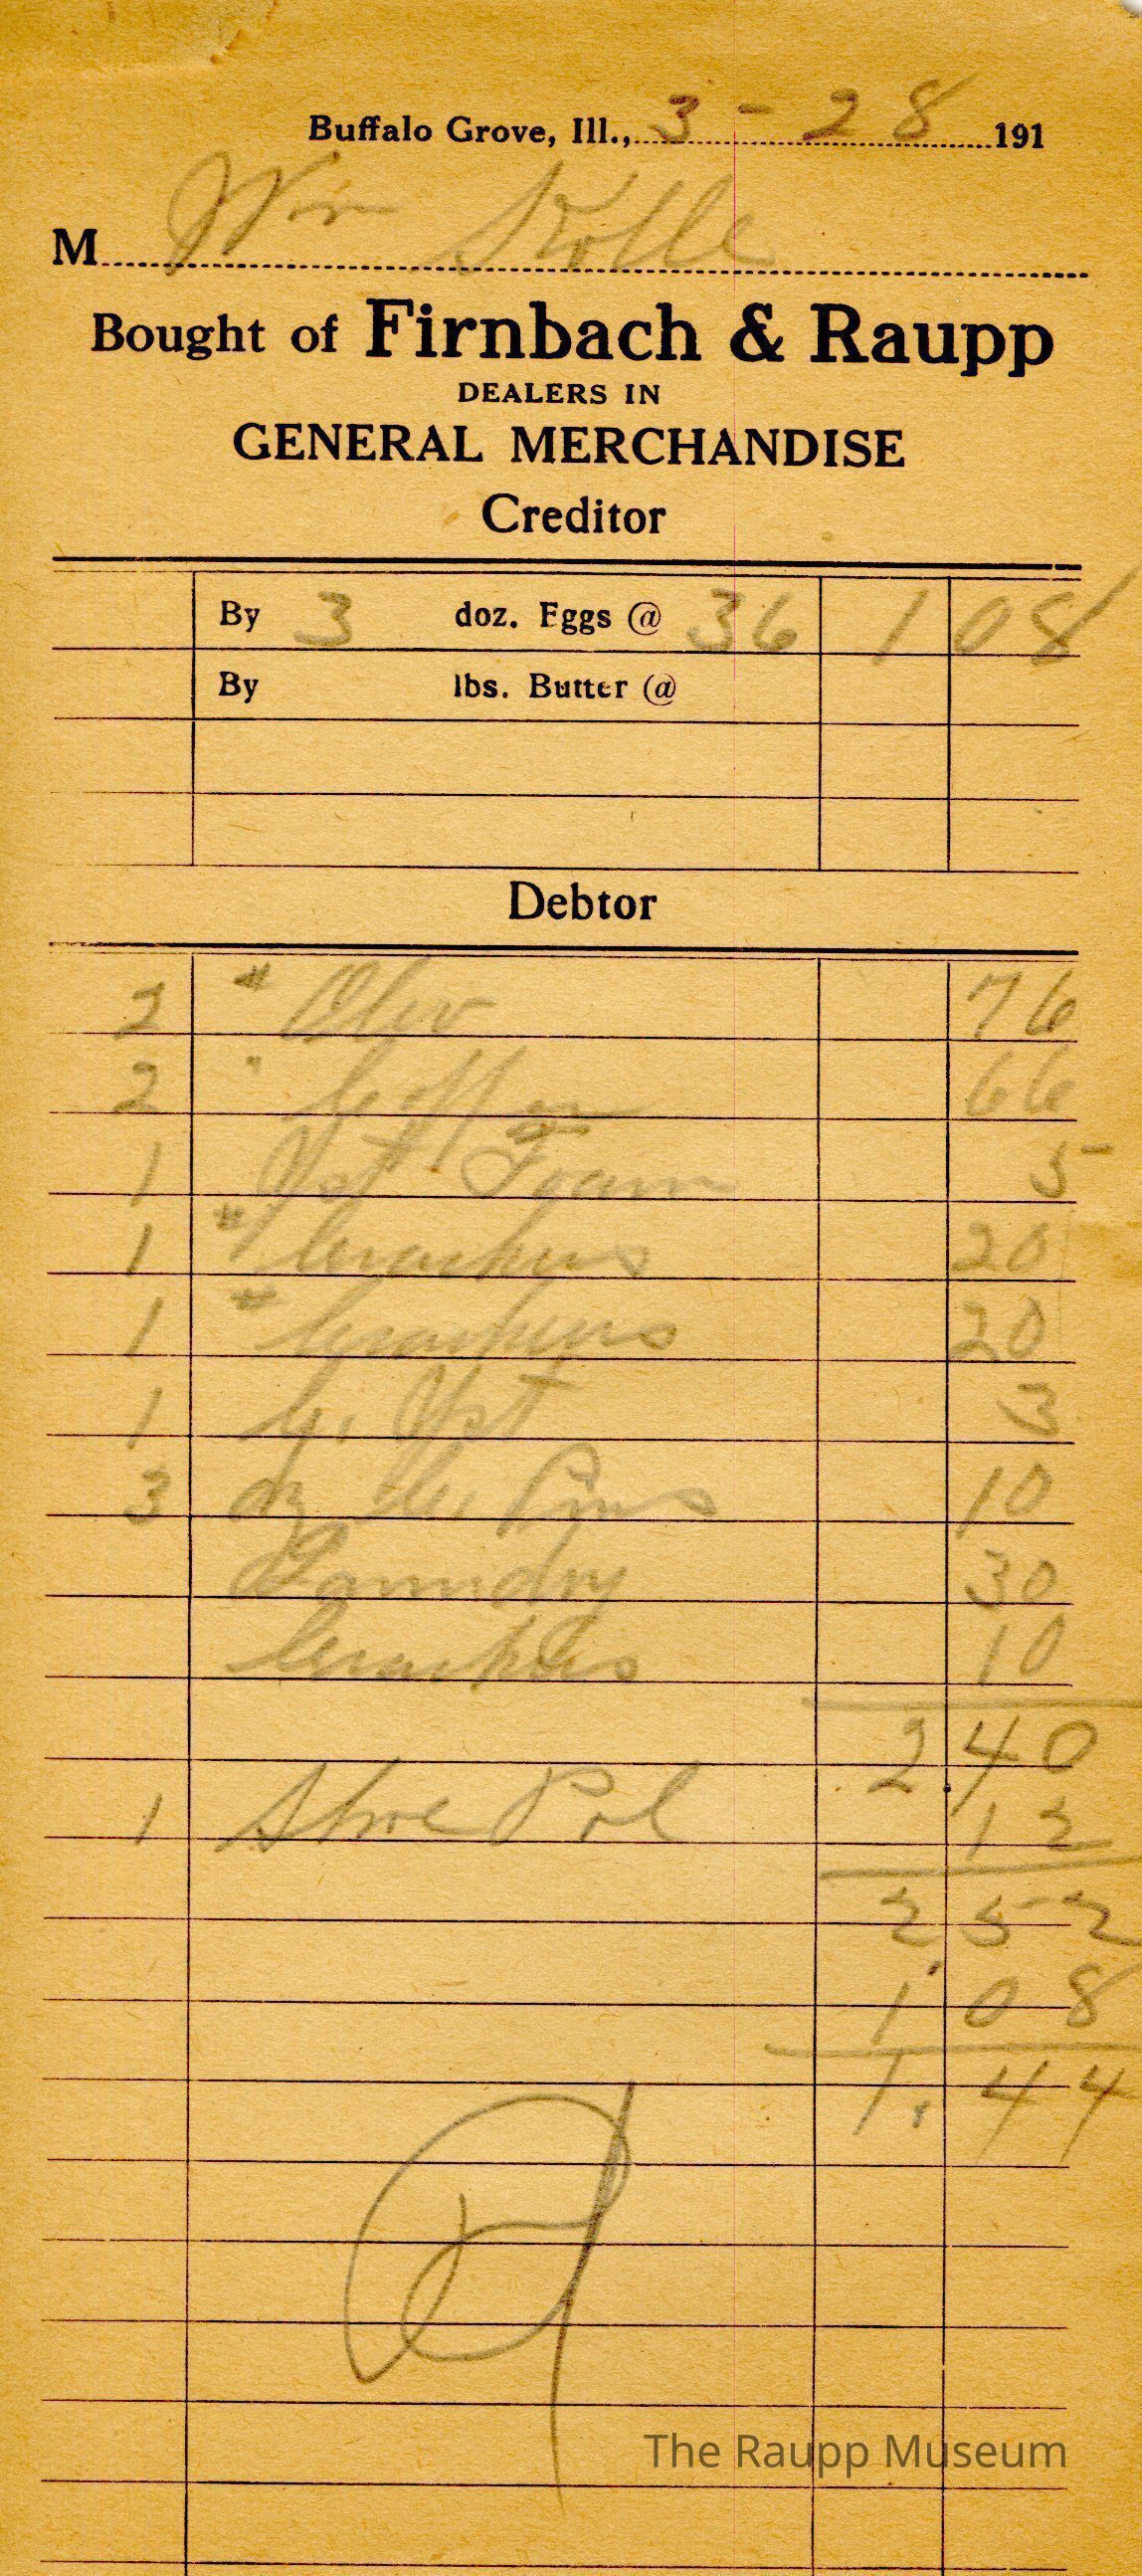 Buffalo Grove, Ill., 3 - 28 191
M Wm Kolle
Bought of Firnbach & Raupp
DEALERS IN
GENERAL MERCHANDISE
Creditor
By 3 doz. Eggs @ 36 1 08
By lbs. Butter @
Debtor
2 # 76
2 " Coffee 66
1 Yst Foam 5
1 # Crackers 20
1 # Crackers 20
1 C. Yst 3
3 dz Cl. Pins 10
Laundry 30
Crackers 10
2.40
1 Shoe Pol 12
2 52
1 08
1.44
The Raupp Museum